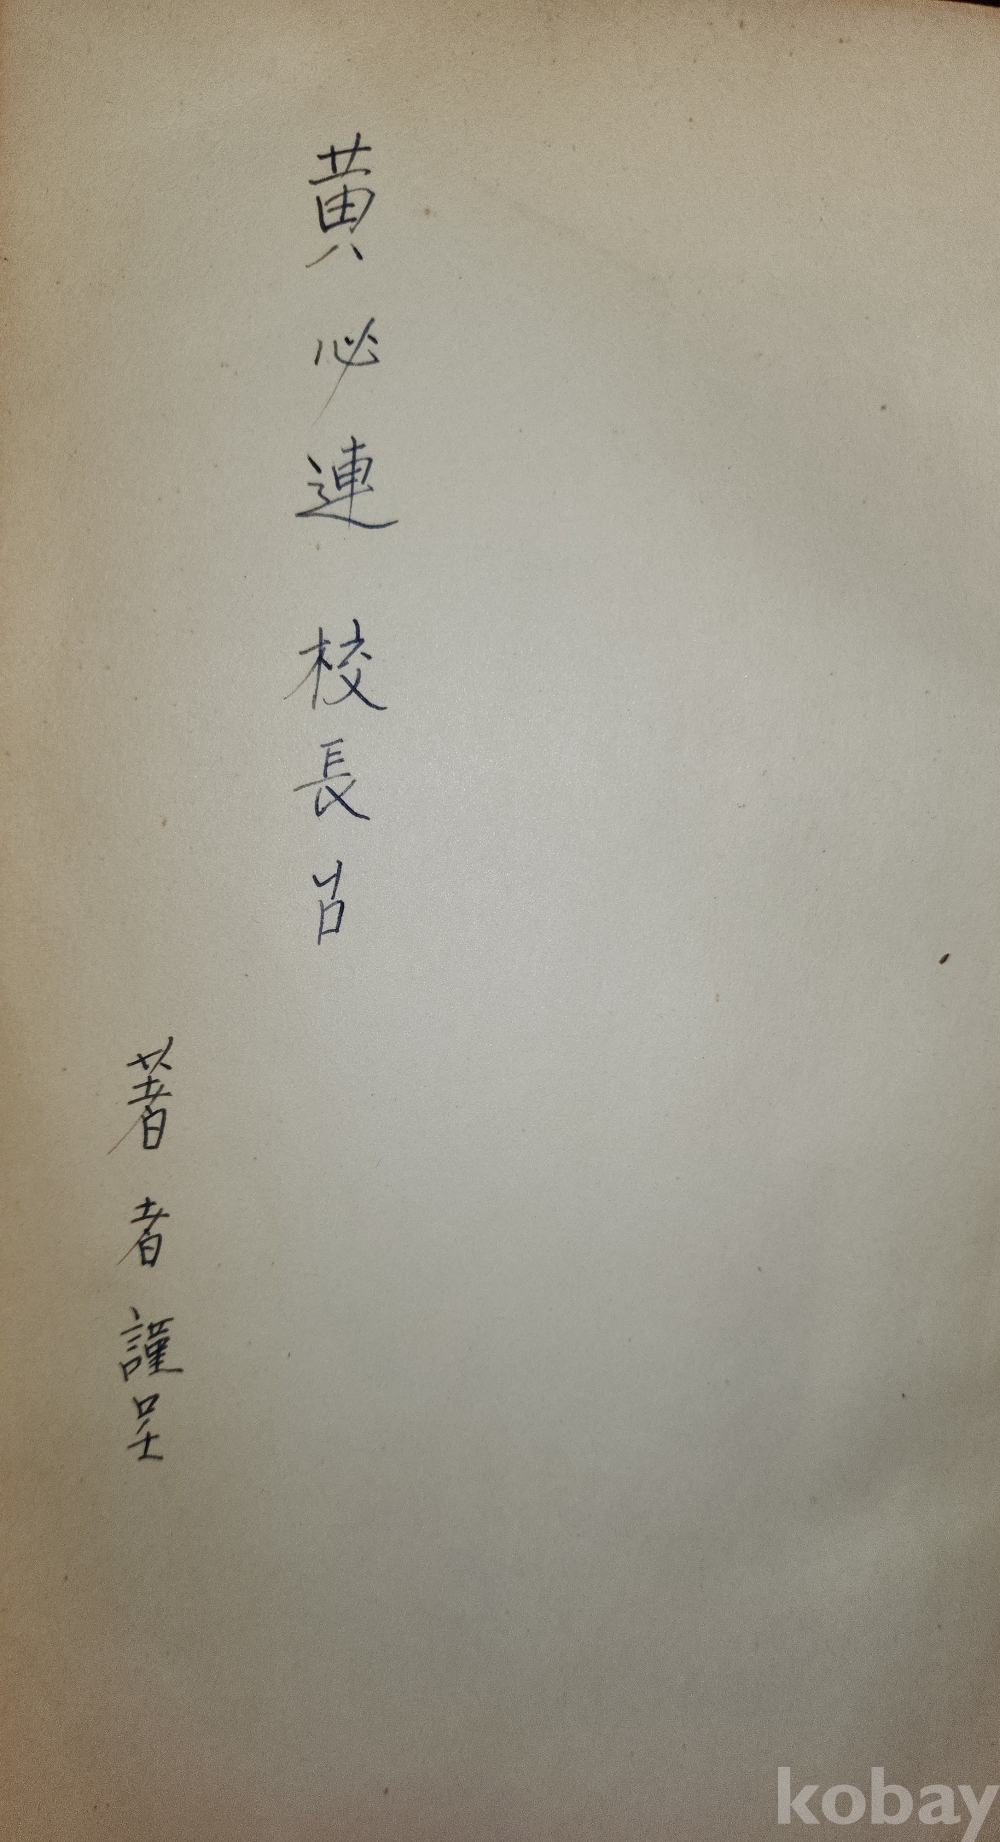 黄必連 校長 旨
著者 謹呈
kobay